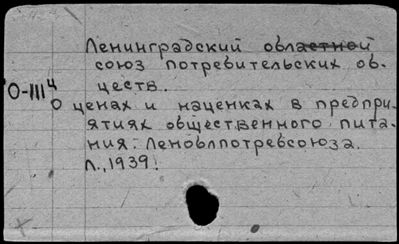 Ленинградский областной
союз потребительских об-
ществ.
О-III4
О ценах и наценках в предпри-
ятиях общественного пита-
ния. Леноблпотребсоюза.
Л., 1939.